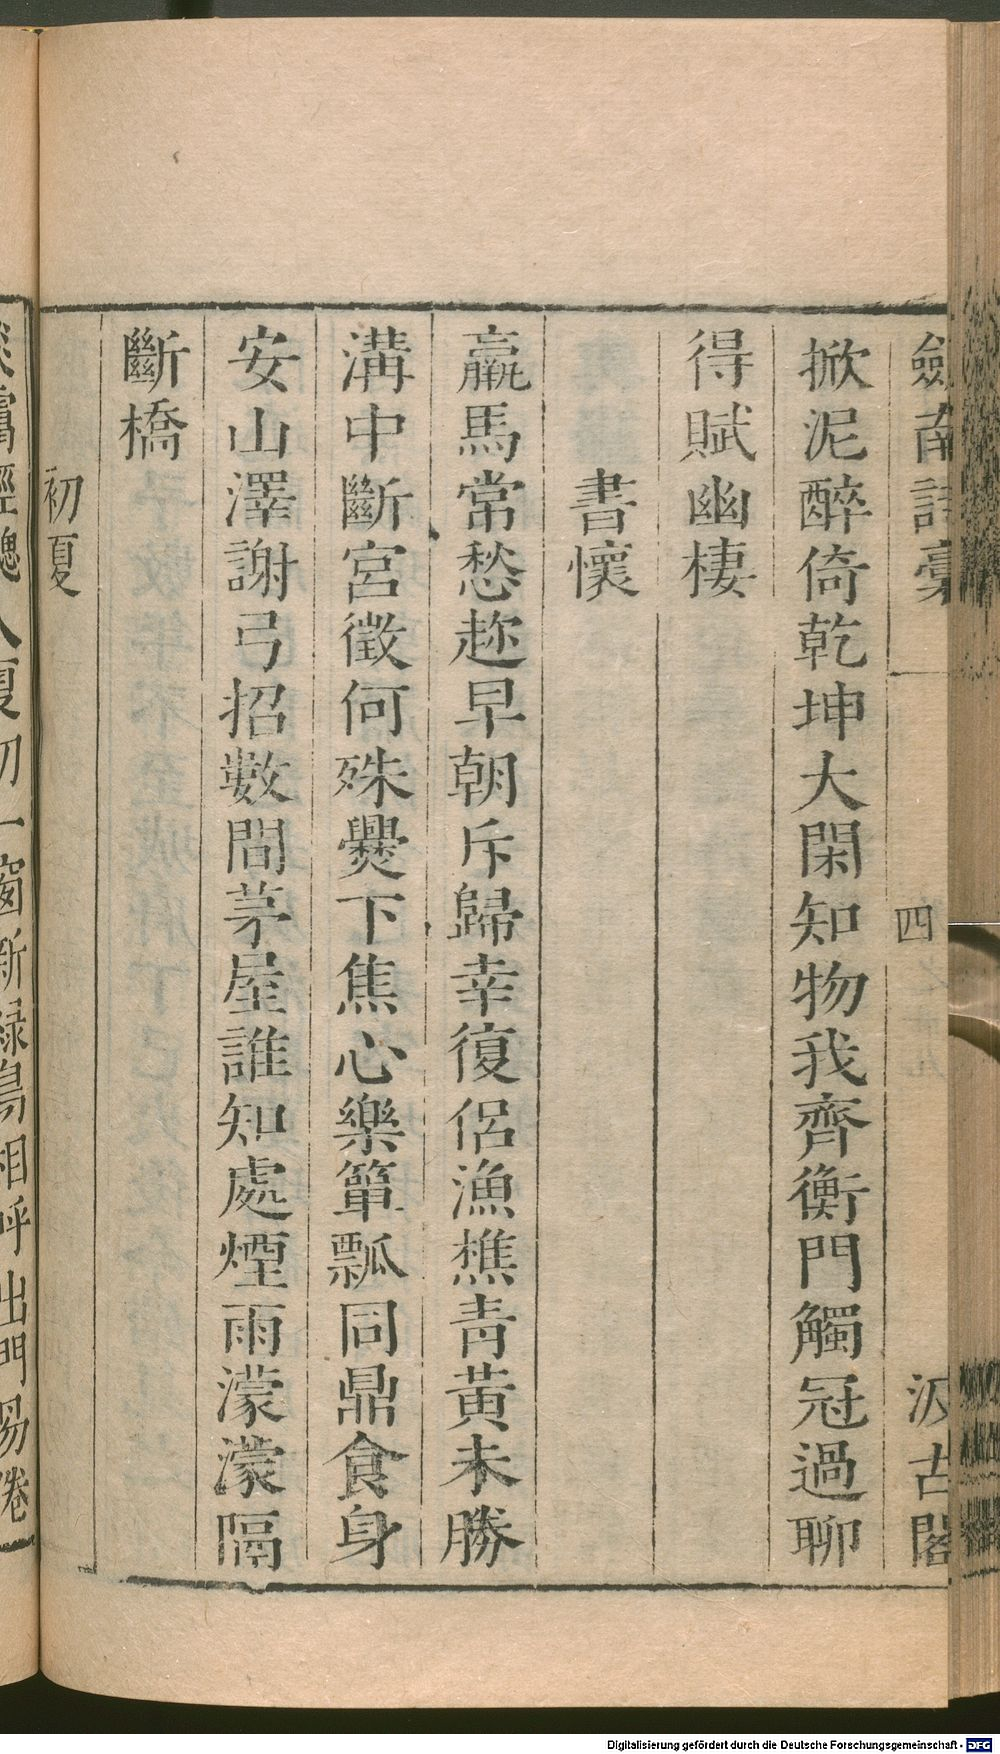 劍南詩稾
四
汲古閣
掀泥醉倚乾坤大閑知物我齊衡門觸冠過聊
得賦幽棲
書懷
羸馬常愁趂早朝斥歸幸復侣漁樵青黃未勝
溝中斷宮徵何殊爨下焦心樂簞瓢同鼎食身
安山澤謝弓招數間茅屋誰知處煙雨濛濛隔
斷橋
初夏
夏初一窗新緑鳥相呼出門易倦
Digitalisierung gefördert durch die Deutsche Forschungsgemeinschaft - DFG